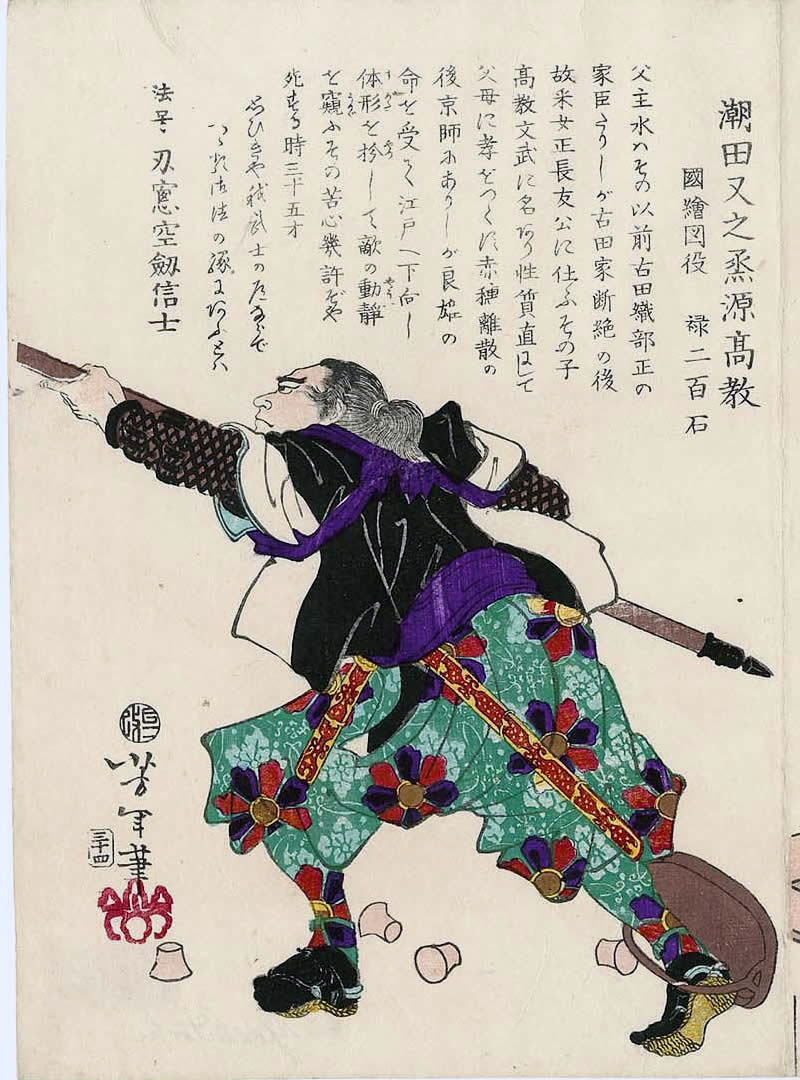 潮田又之烝源髙教
國繪図役　禄二百石
父主水ハその以前古田織部正の
家臣たりしが古田家断絶の後
故采女正長友公に仕ふその子
髙教文武に名あり性質直にして
父母に孝をつくす赤穂離散の
後京師にありしが良雄の
命を受て江戸へ下向し
体形を扮して敵の動静
を窺ふその苦心幾許ぞや
死する時三十五才
思ひきや我武士の道ならで
かゝる御法の縁にあふとハ
法号　刃窓空劔信士
芳年筆
三十四